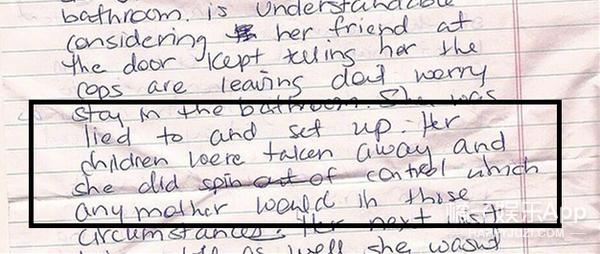 bathroom. is Understandable
considering her friend at
the door kept telling her the
cops are leaving dont worry
stay in the bathroom. She was
lied to and set up. Her
children were taken away and
she did spin out of control which
any mother would in those
circumstances. Her next
as well she wasn't
娱乐App